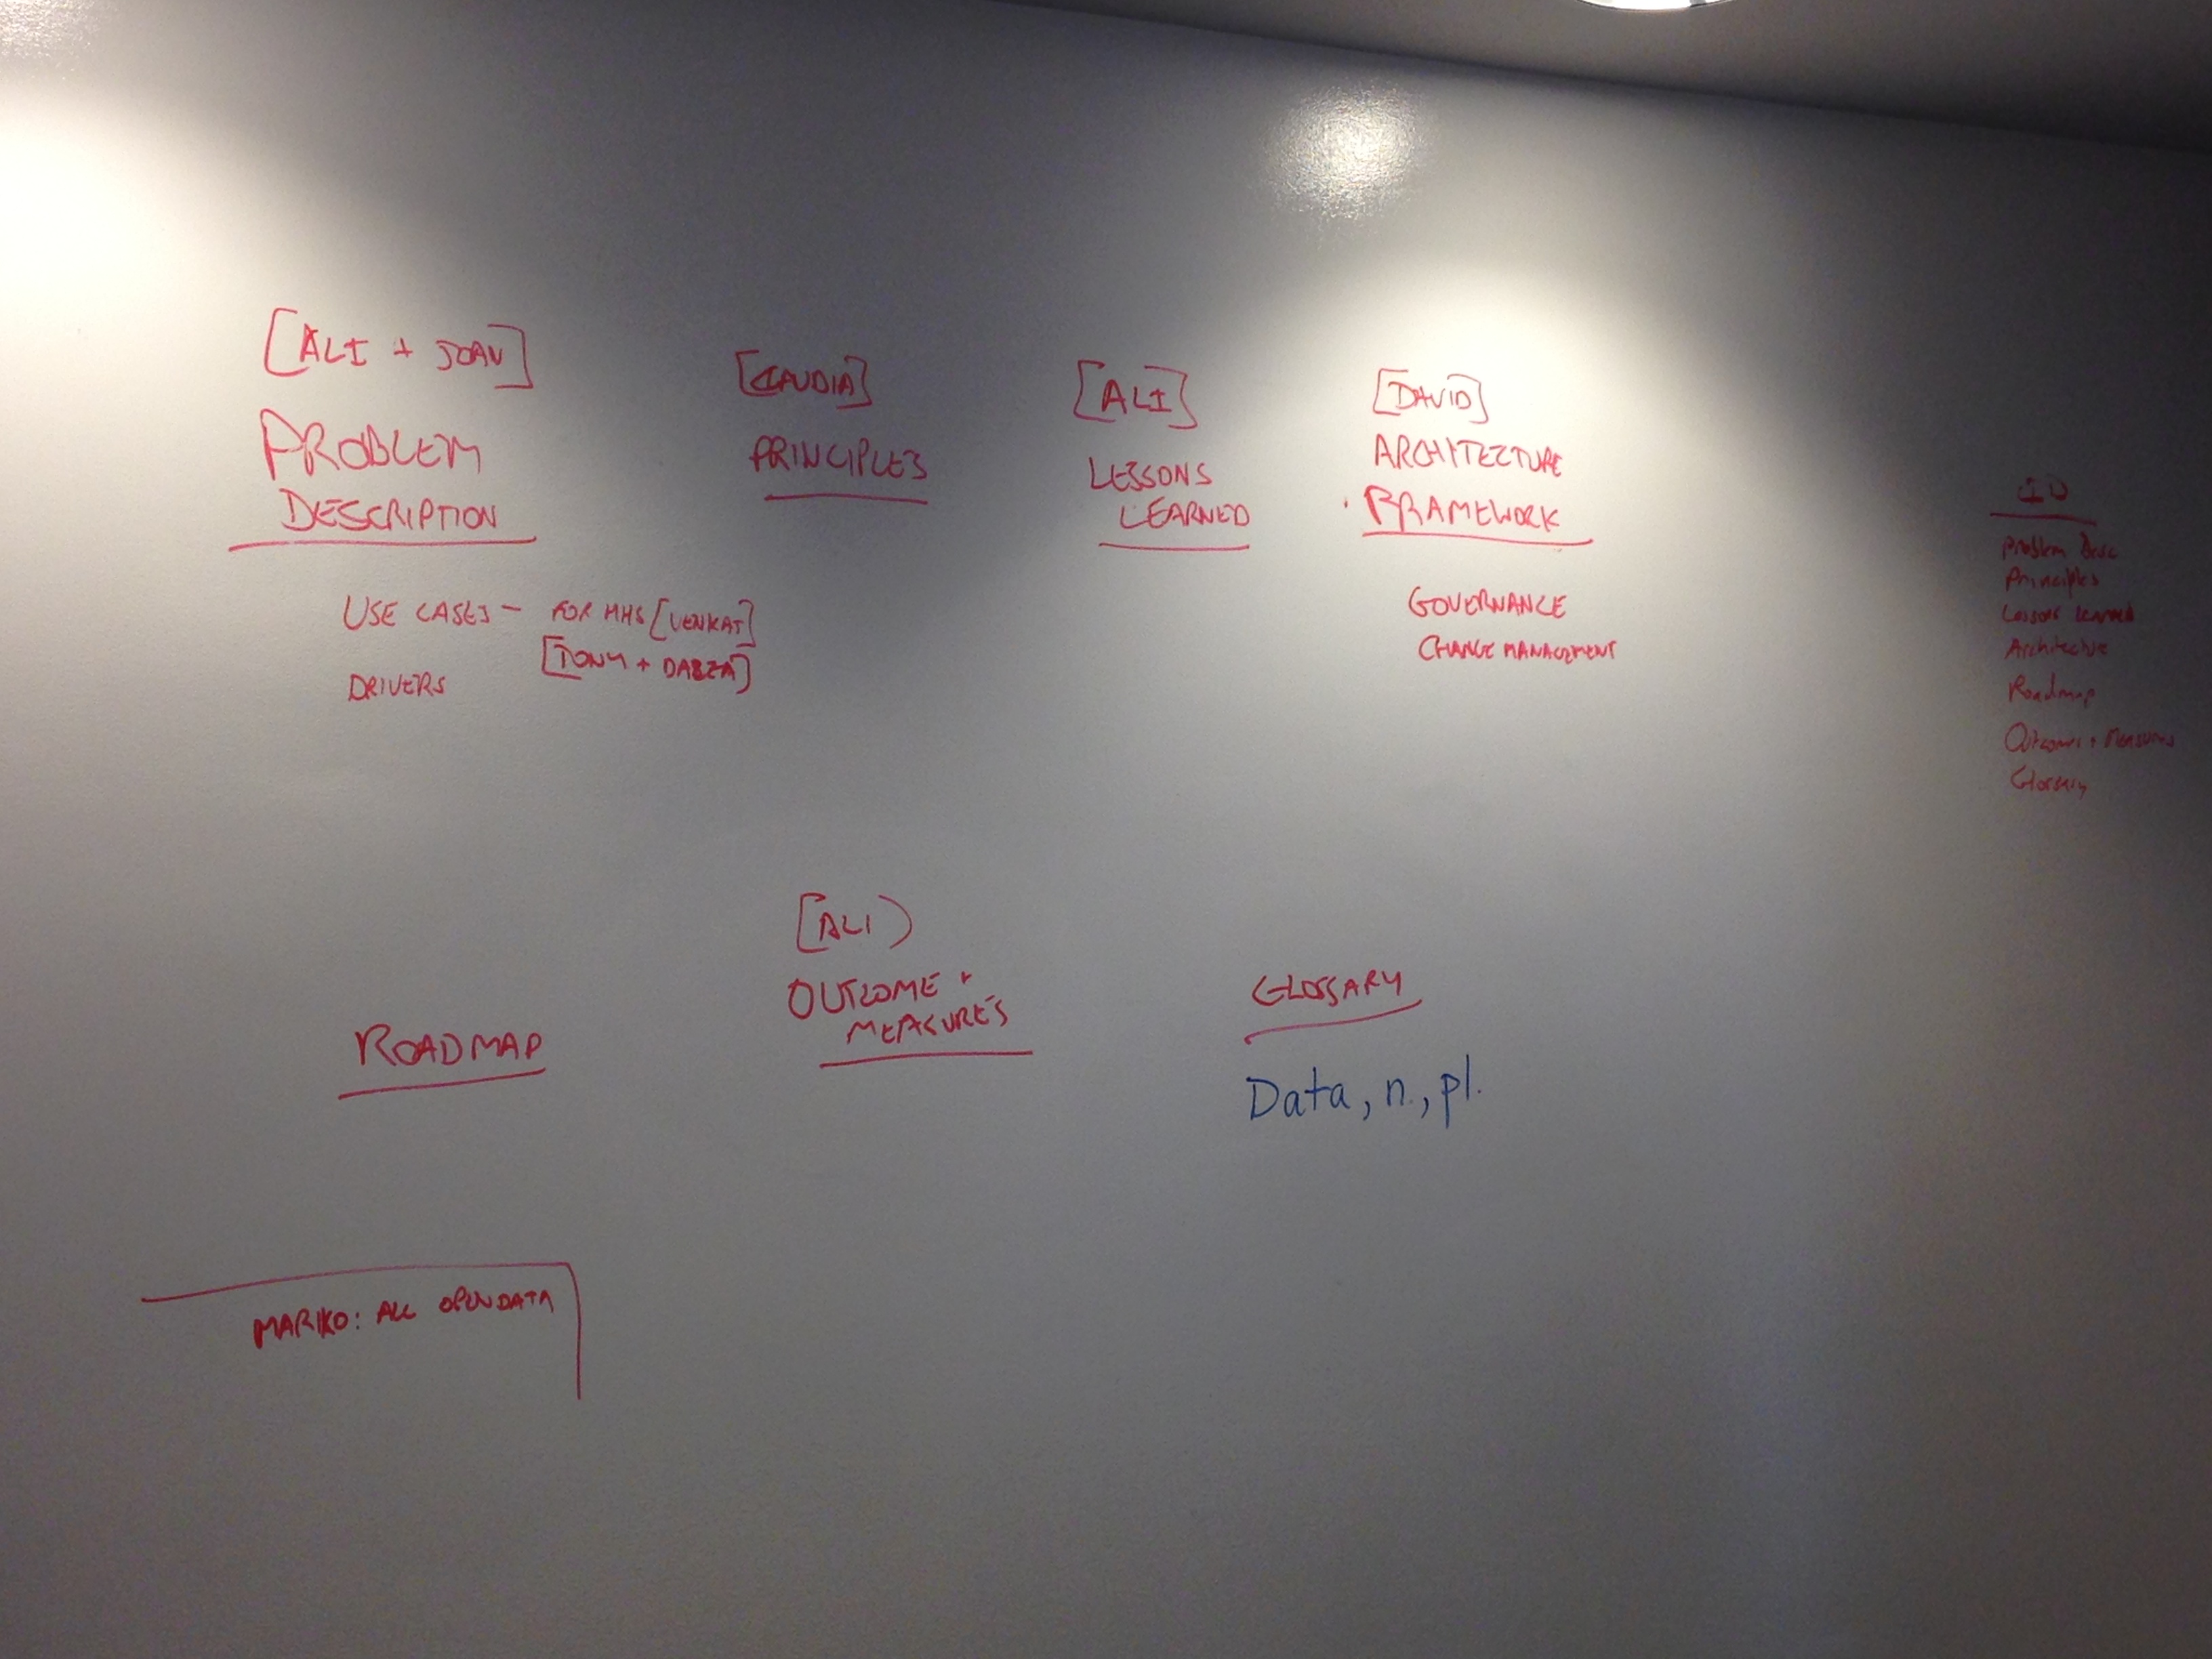 [ALI + JOAN]
PROBLEM
DESCRIPTION
USE CASES — FOR MHS [VENKAT]
[TONY + DABZA]
DRIVERS
[CLAUDIA]
PRINCIPLES
[ALI]
LESSONS
LEARNED
[DAVID]
ARCHITECTURE
FRAMEWORK
GOVERNANCE
CHANGE MANAGEMENT
Problem Desc
Principles
Lessons Learned
Architecture
Roadmap
Outcomes + Measures
Glossary
ROADMAP
[ALI)
OUTCOME +
MEASURES
GLOSSARY
Data, n., pl.
MARIKO: ALL OPENDATA